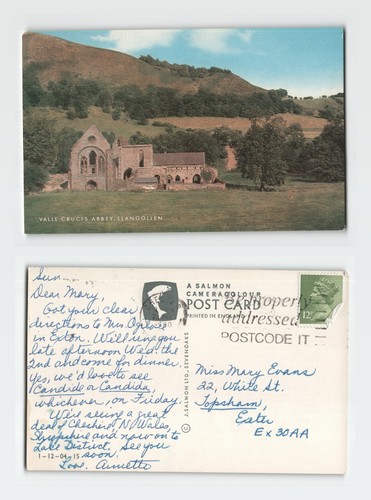 VALLE CRUCIS ABBEY, LLANGOLLEN
Sun
Dear Mary,
Got your clear
directions to Mrs
in Exton. Will ring you
late afternoon Wed. the
2nd and come for dinner.
Yes, we'd love to see
Candide or Candida,
whichever, on Friday.
We're seeing a great
deal of Cheshire, N. Wales,
Shropshire and now on to
Lake District. See you
soon.
Love, Annette
1-12-04-15
A SALMON
CAMERACOLOUR
POST CARD
PRINTED IN ENGLAND
J. SALMON LTD., SEVENOAKS
Properly
addressed
POSTCODE IT
12P
Miss Mary Evans
22, White St.
Topsham,
Exter
Ex 30AA